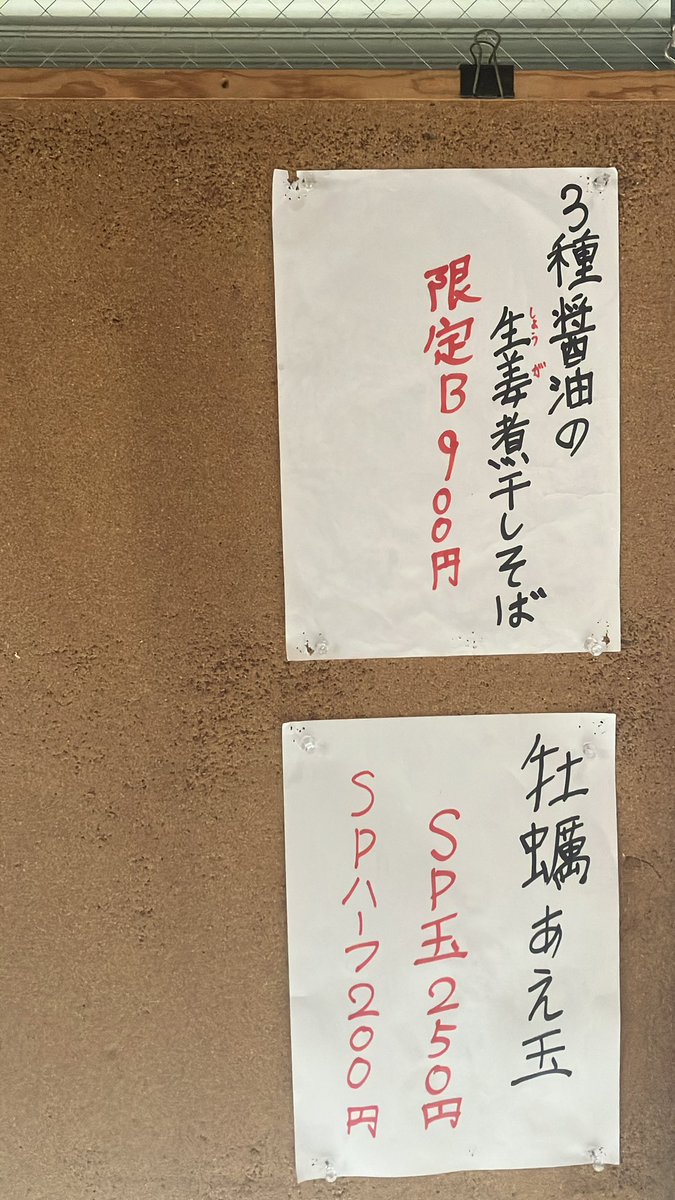 3種醤油の
生姜煮干しそば
しょうが
限定B900円
牡蠣あえ玉
SP玉250円
SPハーフ200円